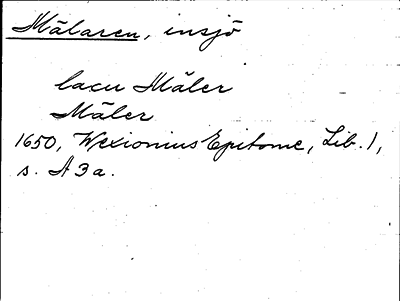 Mälaren, insjö
lacu Mäler
Mäler
1650, Wexionius Epitome, Lib. 1,
s. A 3 a.